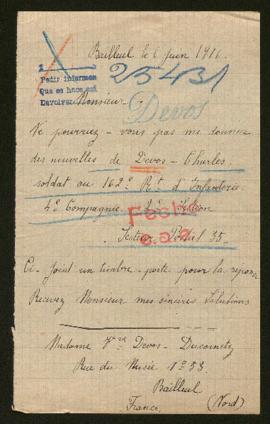 Bailleul le 6 juin 1916.
Pedir informes
Que se hace así
Devos
Monsieur
Ne pourriez-vous pas me donner
des nouvelles de Devos-Charles
soldat au 162e Rt d'Infanterie
4e Compagnie
Secteur Postal 35
Ci-joint un timbre-poste pour la repons
Recevez Monsieur mes sincères Salutations
Madame Vve Devos-Ducornetz
Rue du Musée No 53.
Bailleul
(Nord)
France